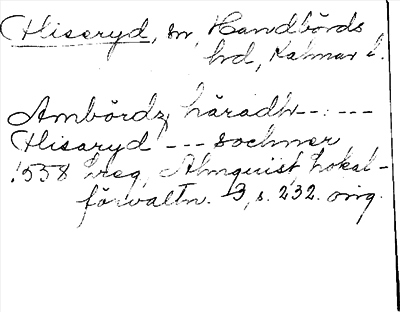 Hisaryd, sn, Handbörds
hrd, Kalmar l.
Ambördz häradh --:---
Hisaryd --- sochner
1558 breg, Almquist, Lokal-
förvaltn. 3, s. 232. orig.